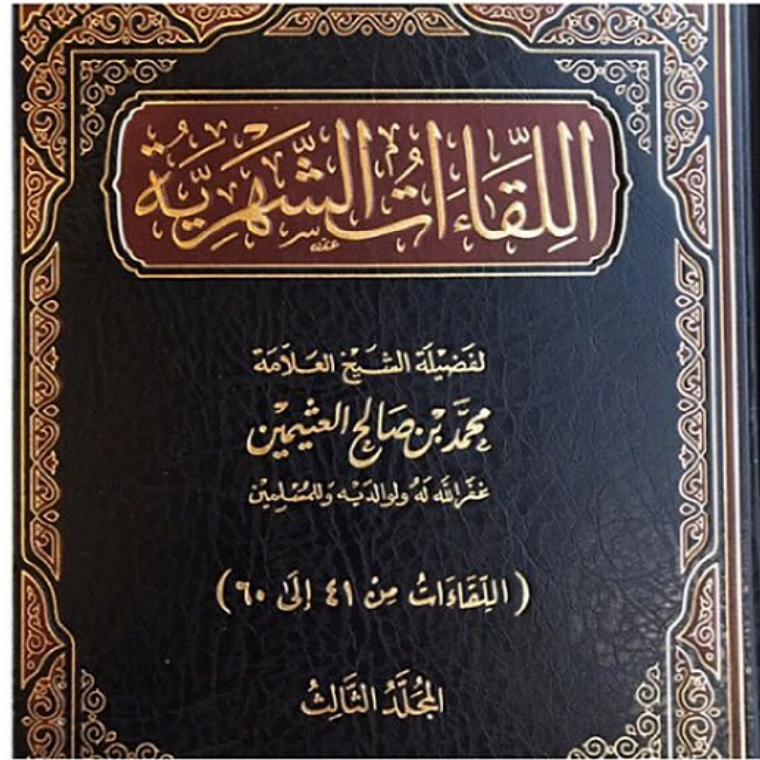 اللِّقَاءَاتُ الشَّهْرِيَّةُ
لفَضِيْلَة الشَّيْخ العَلَّامَة
محمَّد بْن صَالِح العثيمين
غفَرَ اللَّه لَهُ ولوالدَيْه وَللمُسْلِمِيْن
( اللِّقَاءَاتُ مِنْ ٤١ إِلَىٰ ٦٠ )
المُجَلَّدُ الثَّالِثُ